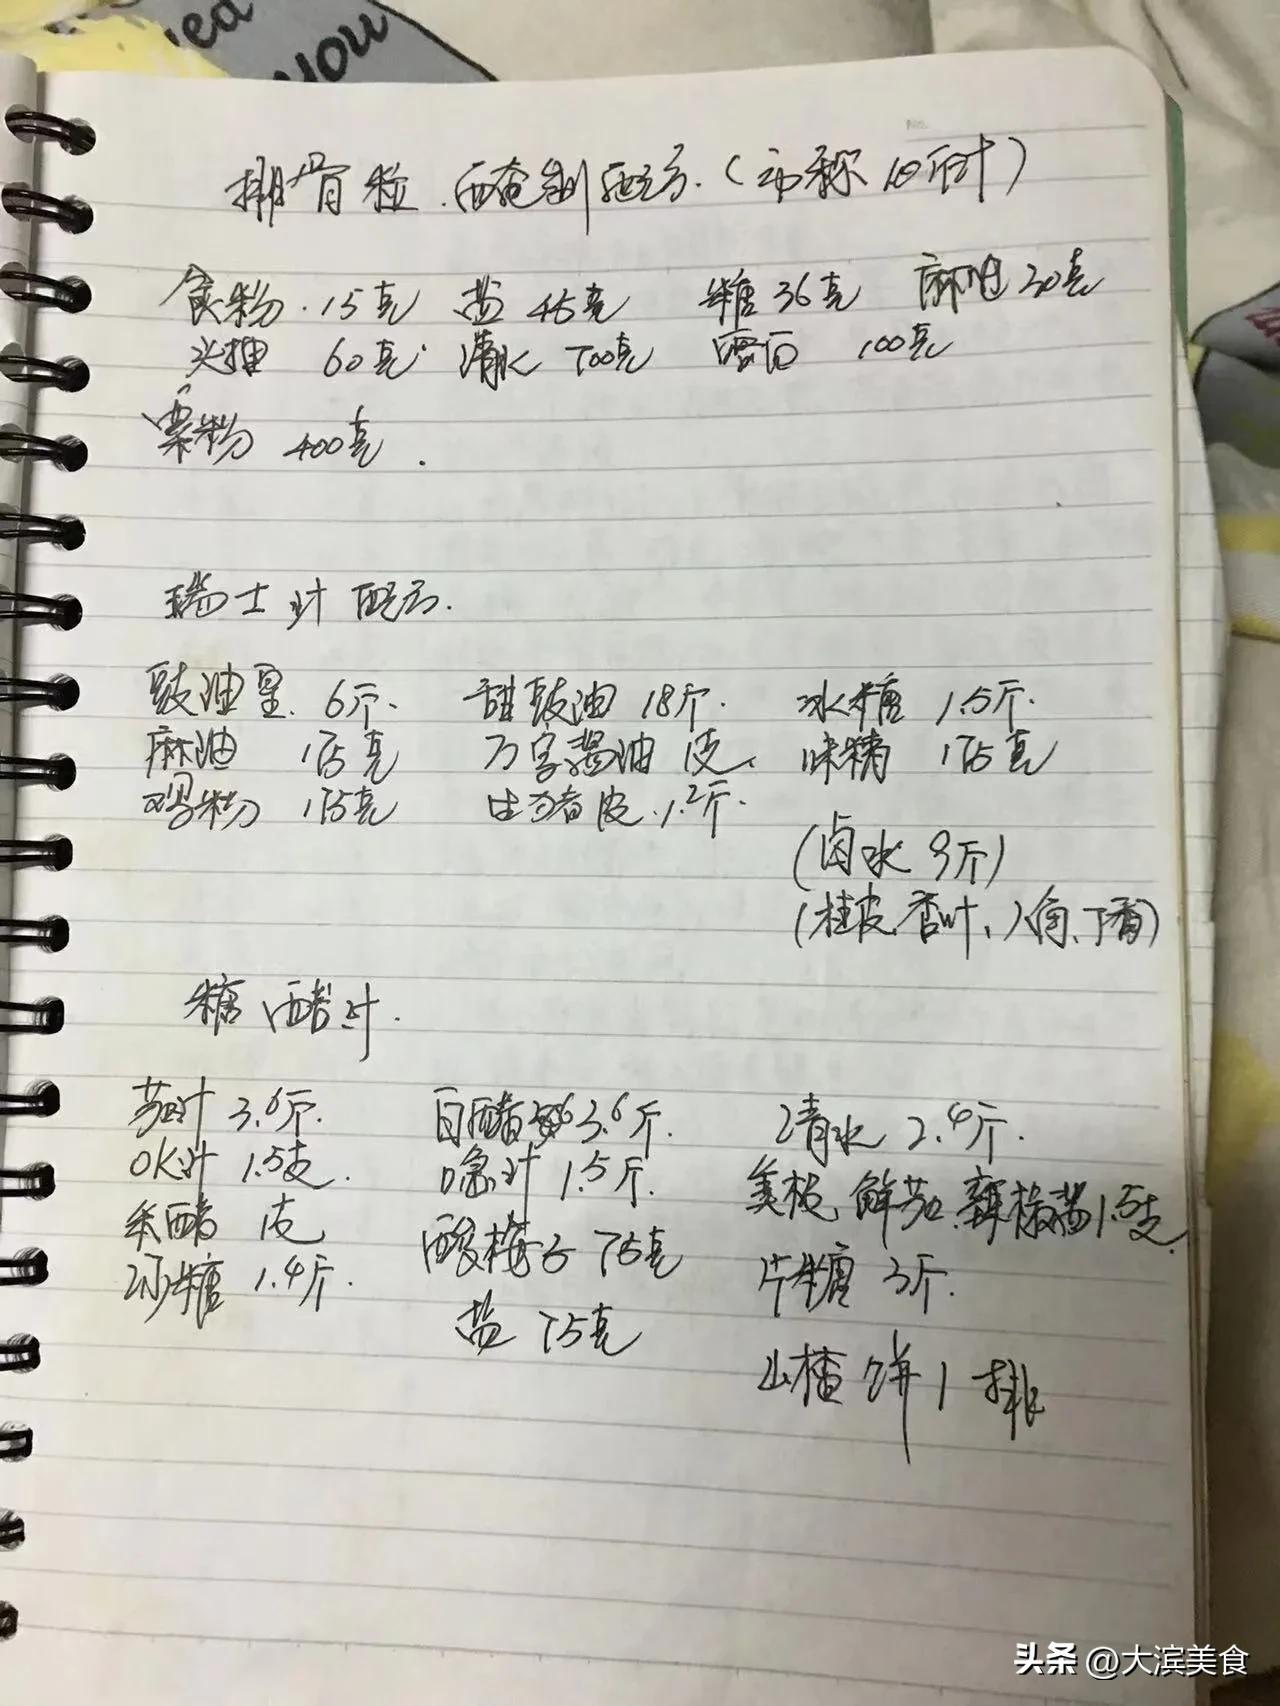 you
排骨粒.腌制配方.(市称10斤计)
食粉.15克 盐45克 糖36克 麻油30克
头抽 60克 清水 700克 蛋白 100克
粟粉 400克.
瑞士汁配方.
豉油皇.6斤. 甜豉油18斤. 冰糖 1.5斤.
麻油 175克 万字酱油 1支、 味精 175克
鸡粉 175克 生猪皮.1.2斤.
(卤水 9斤)
(桂皮、香叶、八角、丁香)
糖醋汁.
茄汁 3.6斤. 白醋 3.6斤. 清水 2.4斤.
OK汁 1.5支. 喼汁 1.5斤. 美极 鲜茄.辣椒酱1.5支.
米醋 1支 酸梅子 75克 片糖 3斤.
砂糖 1.4斤. 盐 75克 山楂饼 1 排
头条 @大滨美食